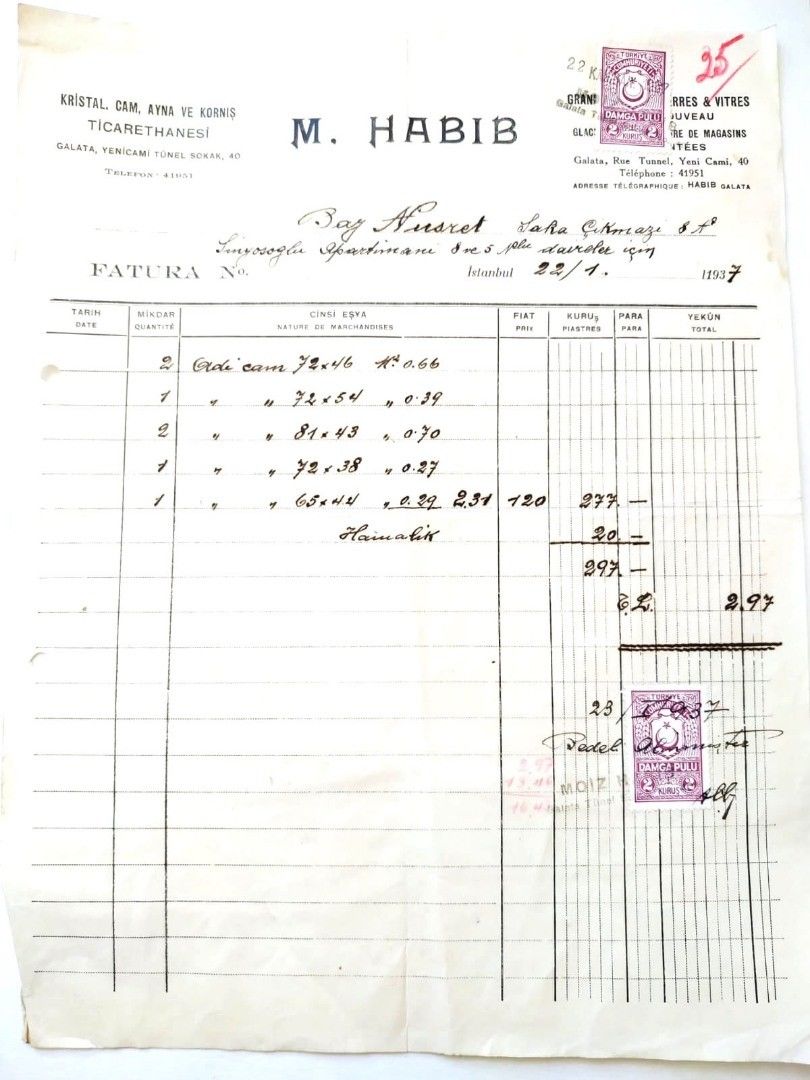 25
22 K
TÜRKİYE
CUMHURİYETİ
DAMGA PULU
2 KURUŞ 2
KRİSTAL, CAM, AYNA VE KORNİŞ
TİCARETHANESİ
GALATA, YENİCAMİ TÜNEL SOKAK, 40
TELEFON : 41951
M. HABIB
GRAN ERRES & VITRES
OUVEAU
GLAC RE DE MAGASINS
NTÉES
Galata, Rue Tunnel, Yeni Cami, 40
Téléphone : 41951
ADRESSE TÉLÉGRAPHIQUE : HABIB GALATA
Bay Nusret Saka Çıkmazi 8 Nº
apartimani 8 ve 5 Nlu daireler için
FATURA No.
İstanbul 22/1. 1937
TARIH MİKDAR CİNSİ EŞYA FIAT KURUŞ PARA YEKÛN
DATE QUANTITÉ NATURE DE MARCHANDISES PRIX PIASTRES PARA TOTAL
2 Adi cam 72×46 M² 0.66
1 " " 72×54 " 0.39
2 " " 81×43 " 0.70
1 " " 72×38 " 0.27
1 " " 65×44 " 0.29 2.31 120 277 —
Hamalik 20 —
297 —
T.L. 2.97
23/I/937
Bedeli alınmıştır
TÜRKİYE
DAMGA PULU
2 KURUŞ 2
2.97
MOIZ H
Galata Tünel